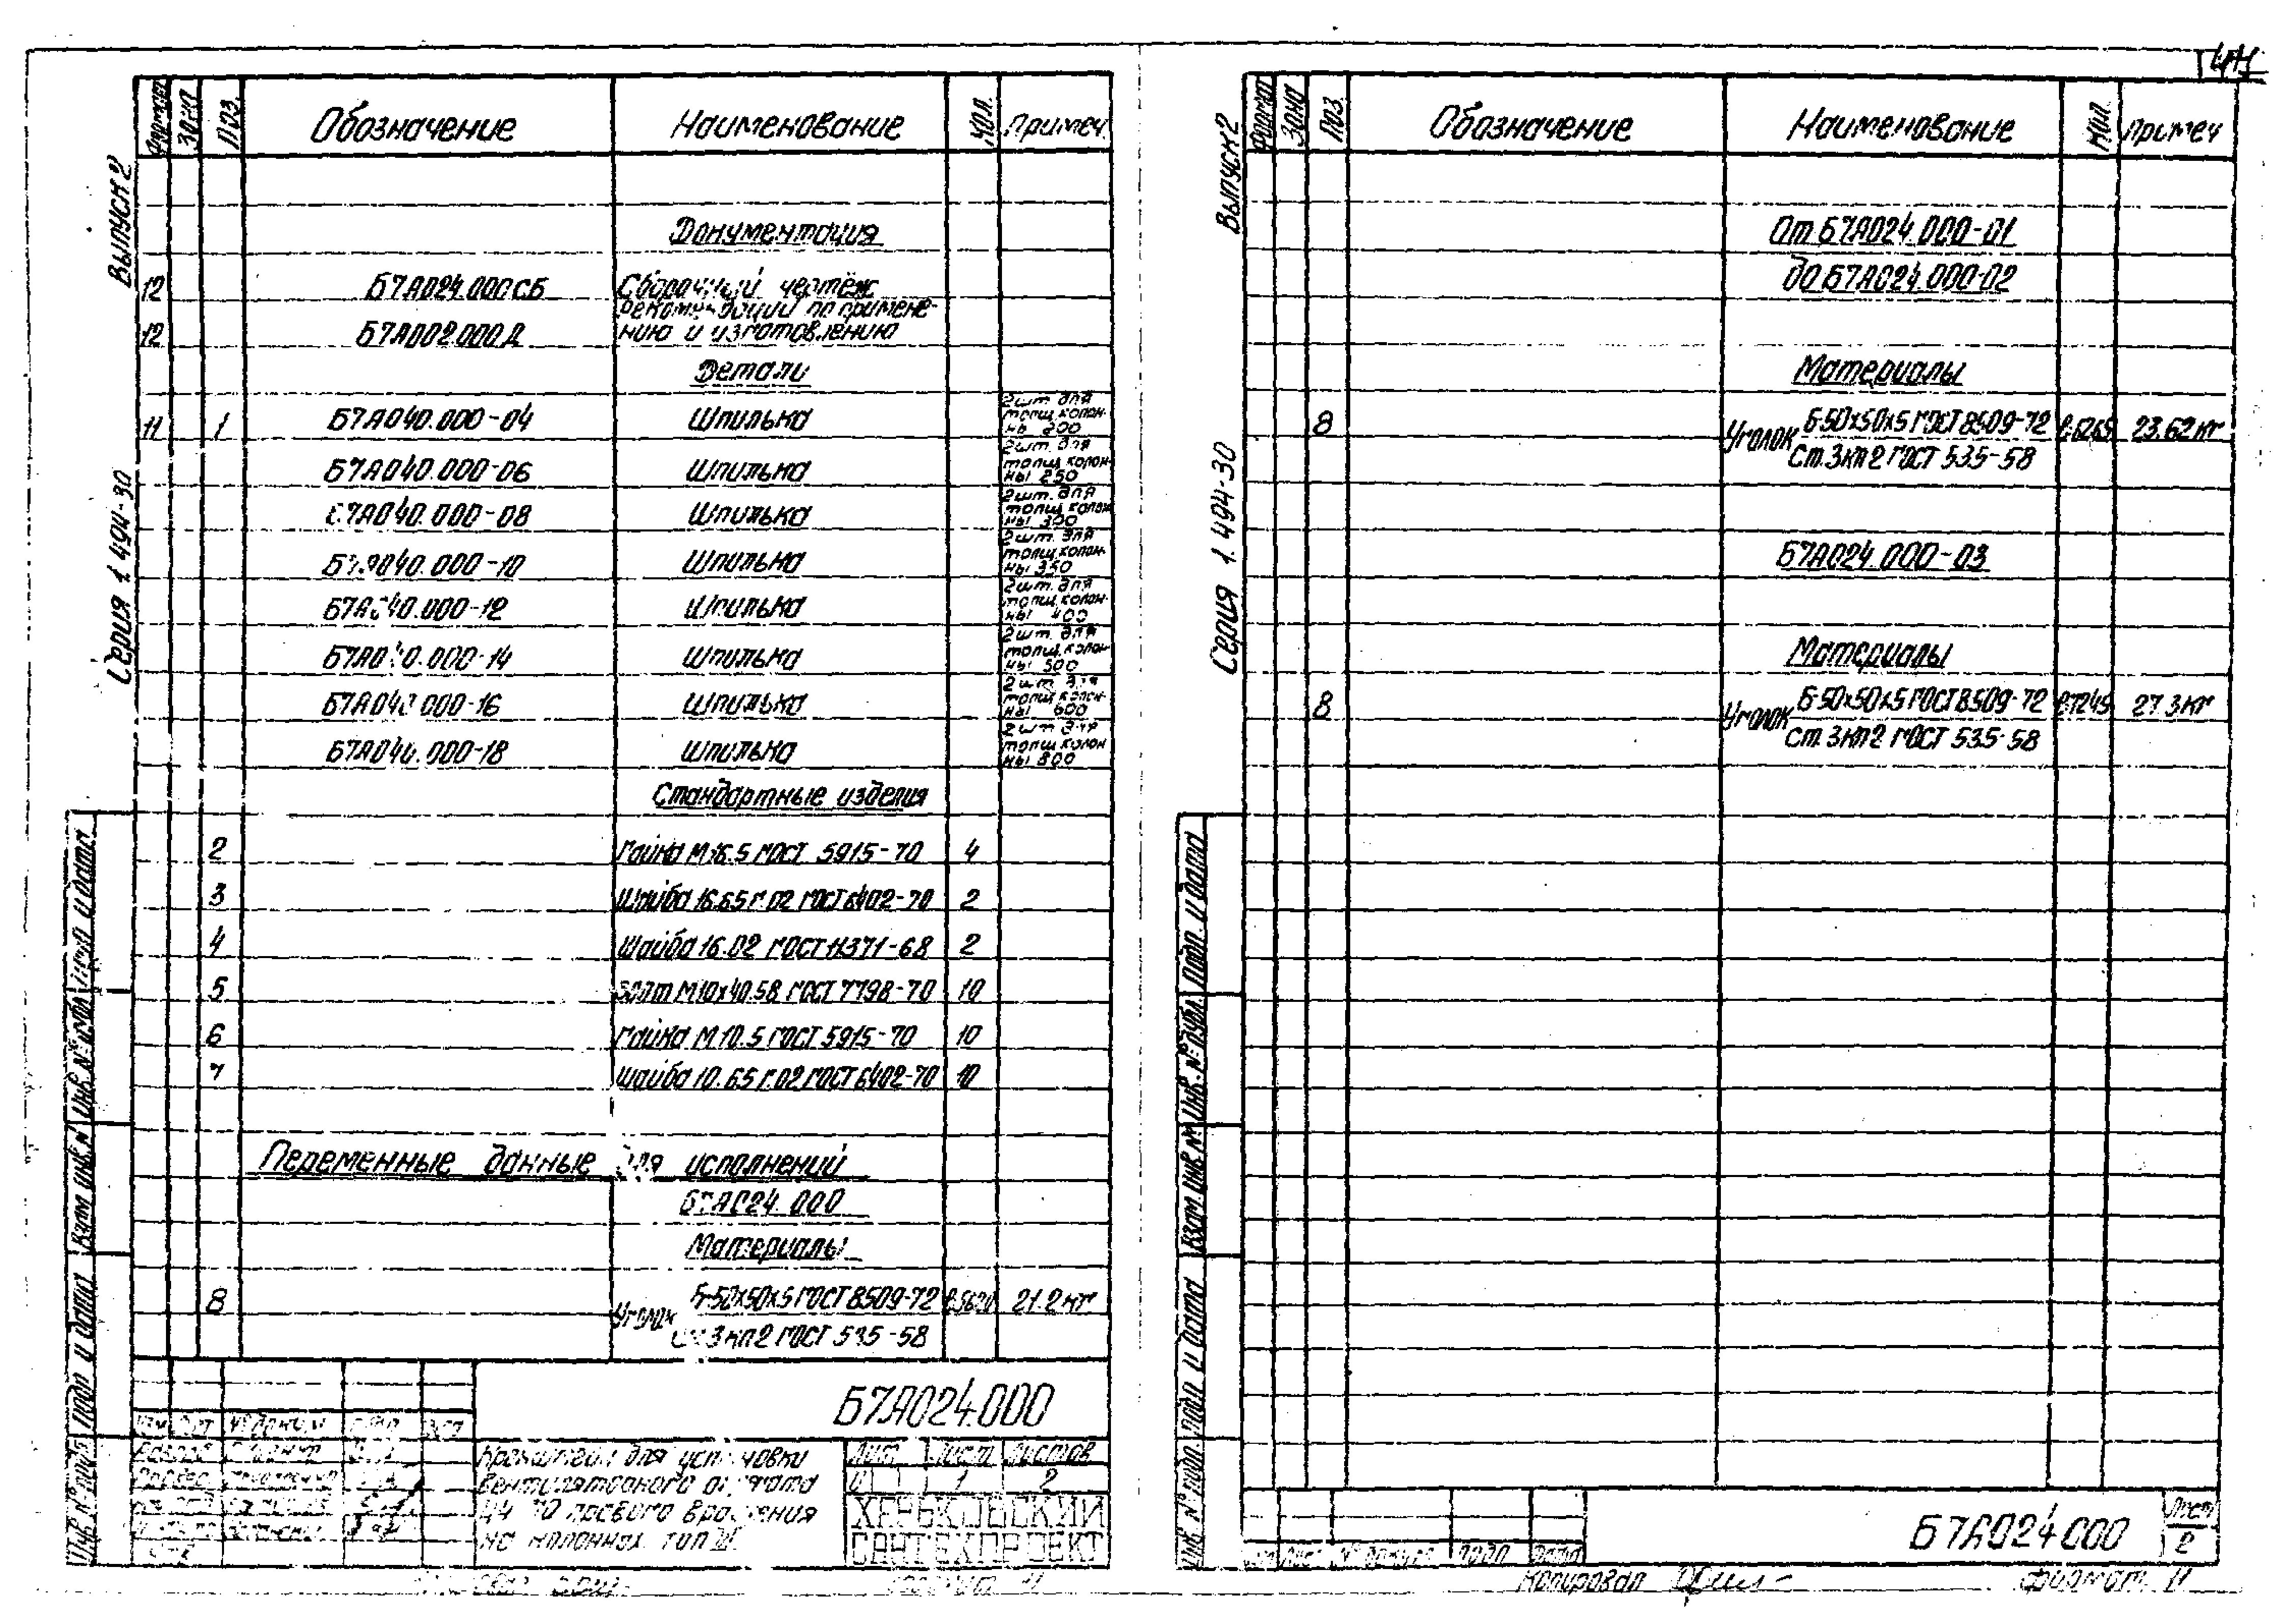 Выпуск 2
Серия 1.494-30
Формат Зона Поз. Обозначение Наименование Кол. Примеч.
Документация
12 Б7А024.000СБ Сборочный чертёж
12 Б7А002.000Д Рекомендации по примене-
нию и изготовлению
Детали
11 1 Б7А040.000-04 Шпилька 2шт. для
толщ. колон-
ны 200
Б7А040.000-06 Шпилька 2шт. для
толщ. колон-
ны 250
Б7А040.000-08 Шпилька 2шт. для
толщ. колон
ны 300
Б7А040.000-10 Шпилька 2шт. для
толщ. колон-
ны 350
Б7А040.000-12 Шпилька 2шт. для
толщ. колон-
ны 400
Б7А040.000-14 Шпилька 2шт. для
толщ. колон-
ны 500
Б7А040.000-16 Шпилька 2шт. для
толщ. колон-
ны 600
Б7А040.000-18 Шпилька 2шт. для
толщ. колон
ны 800
Стандартные изделия
2 Гайка М16.5 ГОСТ 5915-70 4
3 Шайба 16.65Г.02 ГОСТ 6402-70 2
4 Шайба 16.02 ГОСТ 11371-68 2
5 Болт М10х40.58 ГОСТ 7798-70 10
6 Гайка М10.5 ГОСТ 5915-70 10
7 Шайба 10.65Г.02 ГОСТ 6402-70 10
Переменные данные для исполнений
Б7А024.000
Материалы
8 Уголок Б-50х50х5 ГОСТ 8509-72 21.2 кг
Ст.3кп2 ГОСТ 535-58
Б7А024.000
Кронштейн для установки
вентиляторного агрегата
Ц4-70 правого вращения
на колоннах. тип
Лит. Лист Листов
1 2
ХАРЬКОВСКИЙ
САНТЕХПРОЕКТ
Инв. № подл. Подп. и дата Взам. инв. № Инв. № дубл. Подп. и дата
Выпуск 2
Серия 1.494-30
Формат Зона Поз. Обозначение Наименование Кол. Примеч
От Б7А024.000-01
до Б7А024.000-02
Материалы
8 Уголок Б-50х50х5 ГОСТ 8509-72 23.62 кг
Ст.3кп2 ГОСТ 535-58
Б7А024.000-03
Материалы
8 Уголок Б-50х50х5 ГОСТ 8509-72 27.3 кг
Ст.3кп2 ГОСТ 535-58
Инв. № подл. Подп. и дата Взам. инв. № Инв. № дубл. Подп. и дата
Б7А024.000
Лист
2
Копировал
Формат 11